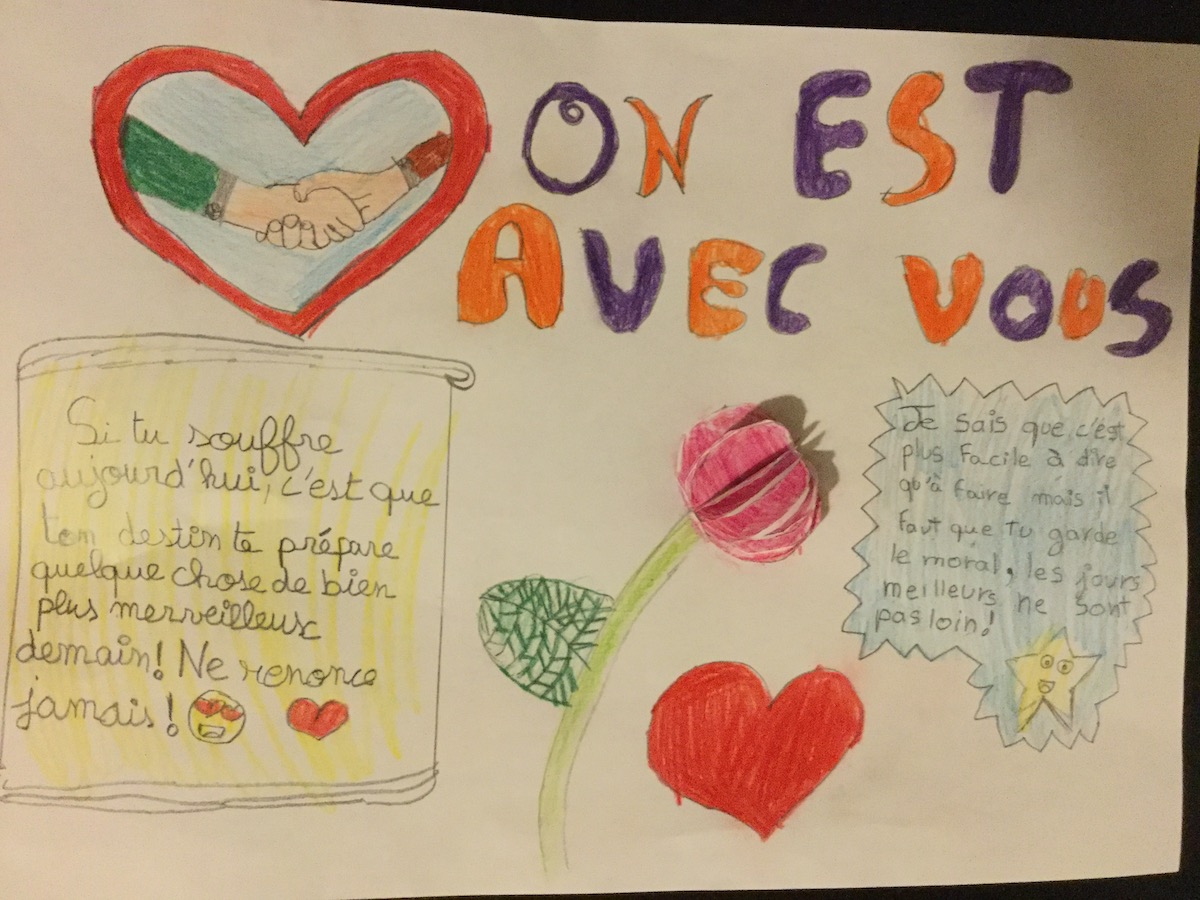 ON EST
AVEC VOUS
Si tu souffre
aujourd'hui, c'est que
ton destin te prépare
quelque chose de bien
plus merveilleux
demain! Ne renonce
jamais!
Je sais que c'est
plus facile à dire
qu'à faire mais il
faut que tu garde
le moral, les jours
meilleurs ne sont
pas loin!